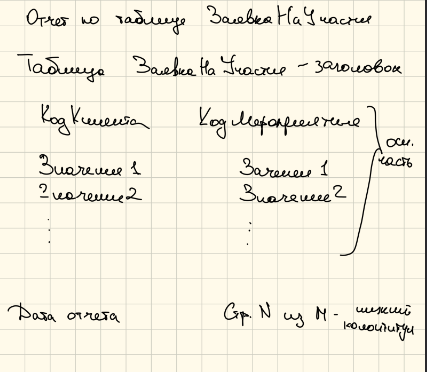 Отчет по таблице ЗаявкаНаУчастие
Таблица ЗаявкаНаУчастие - заголовок
КодКлиента КодМероприятия
Значение 1 Значение 1
Значение 2 Значение 2
осн. часть
Дата отчета Стр. N из M - нижний колонтитул